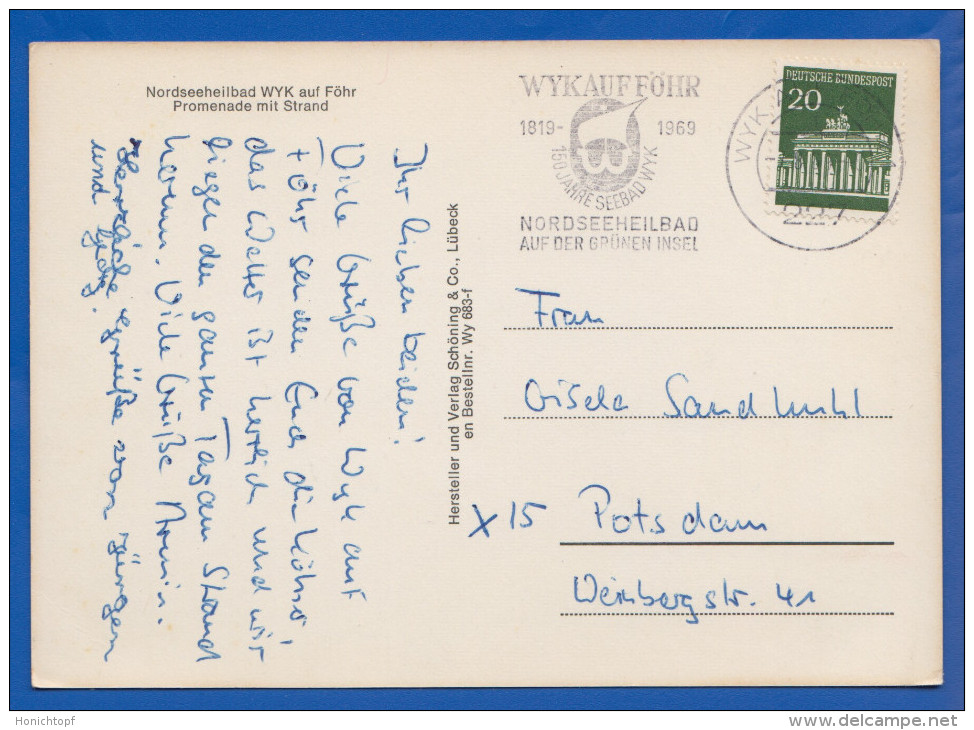 Nordseeheilbad WYK auf Föhr
Promenade mit Strand
WYK AUF FÖHR
1819-1969
150 JAHRE SEEBAD WYK
NORDSEEHEILBAD
AUF DER GRÜNEN INSEL
DEUTSCHE BUNDESPOST
20
WYK
Ihr lieben beiden!
Viele Grüße von Wyk auf
Föhr senden Euch die
das Wetter ist herrlich und wir
liegen den ganzen Tag am Strand
herum. Viele Grüße Armin.
Herzliche Grüße von Jürgen
und Jörg.
Hersteller und Verlag Schöning & Co., Lübeck
en Bestellnr. Wy 683-f
Frau
Gisela Sandkuhl
X 15 Potsdam
Weinbergstr. 41
Honichtopf
delcampe.net